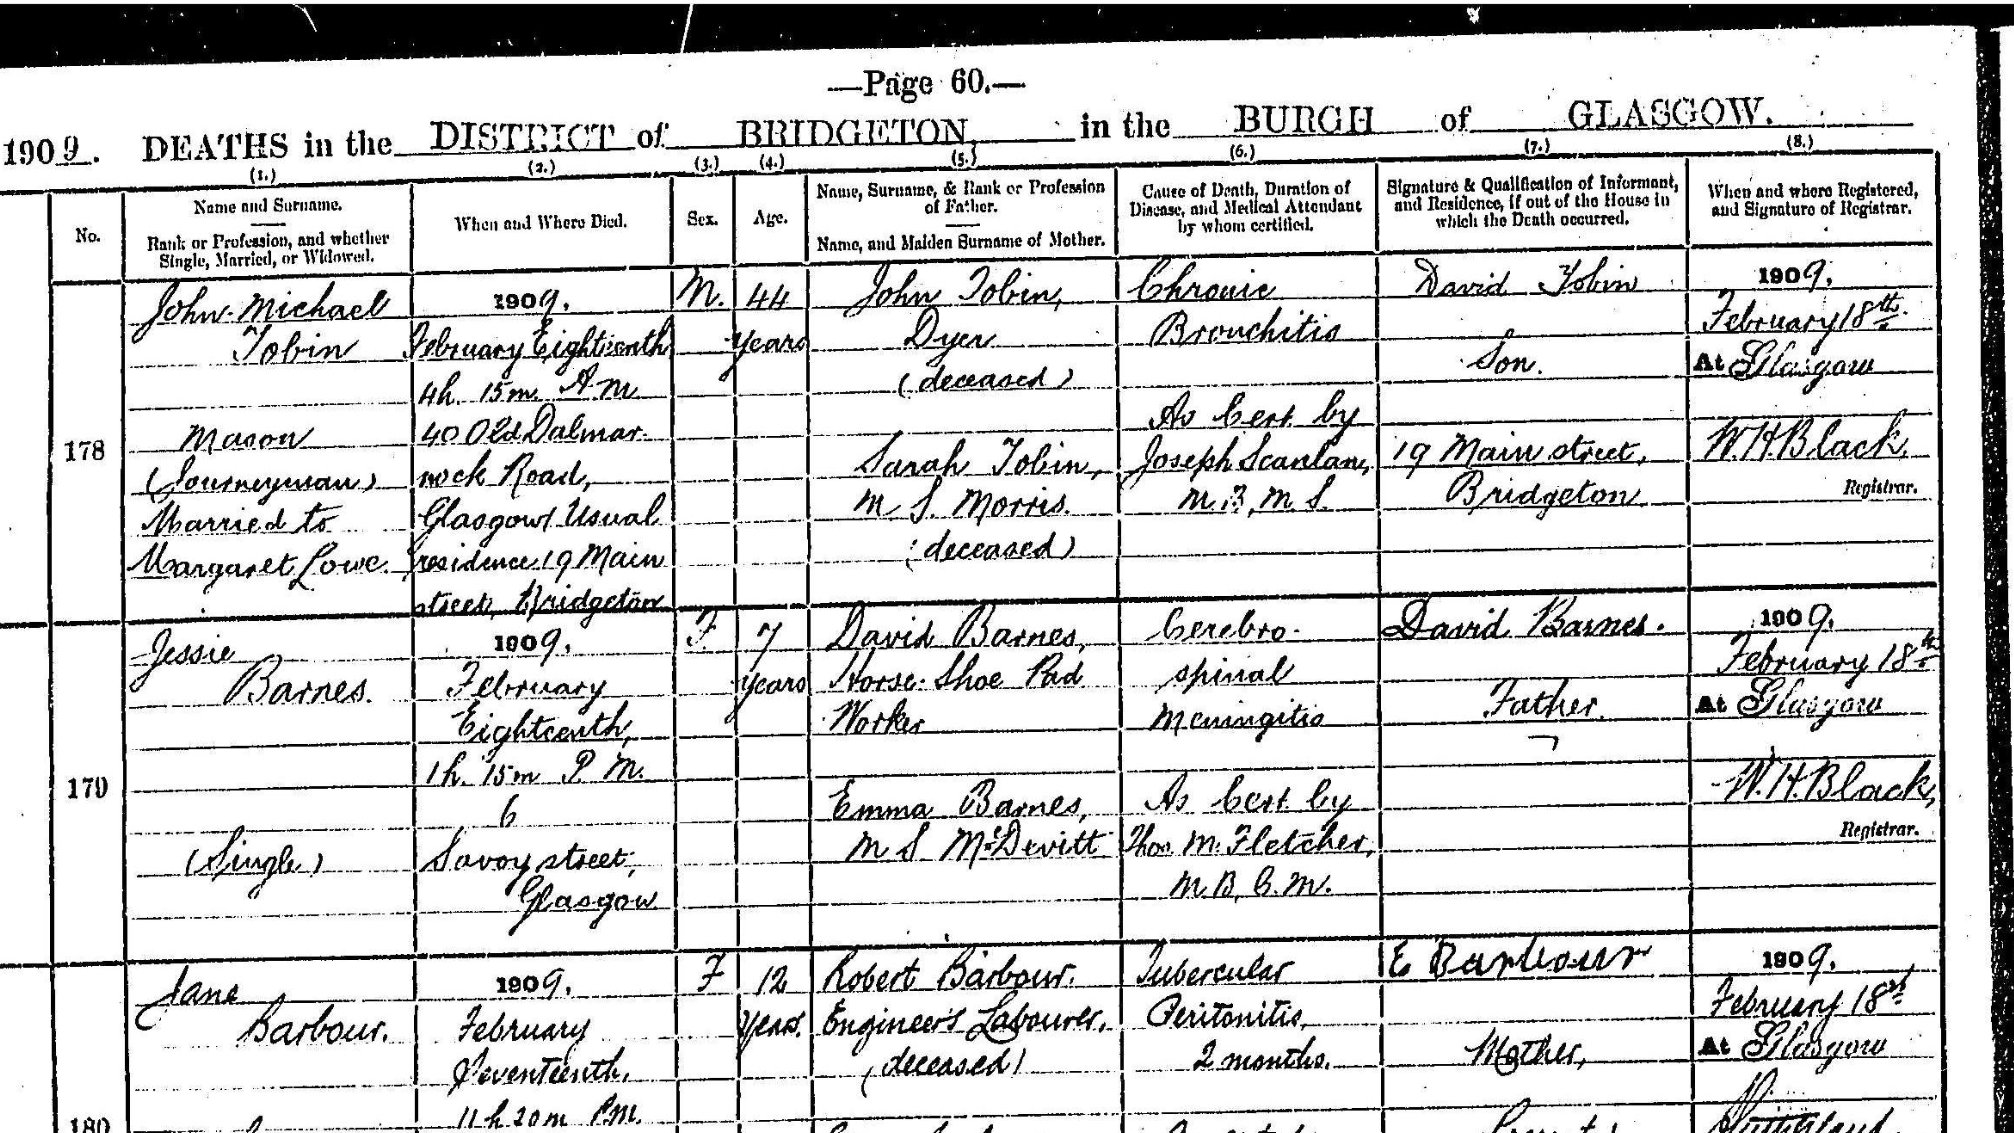 —Page 60.—
1909. DEATHS in the DISTRICT of BRIDGETON, in the BURGH of GLASGOW.
(1.) (2.) (3.) (4.) (5.) (6.) (7.) (8.)
No.
Name and Surname.
Rank or Profession, and whether
Single, Married, or Widowed.
When and Where Died.
Sex.
Age.
Name, Surname, & Rank or Profession
of Father.
Name, and Maiden Surname of Mother.
Cause of Death, Duration of
Disease, and Medical Attendant
by whom certified.
Signature & Qualification of Informant,
and Residence, if out of the House in
which the Death occurred.
When and where Registered,
and Signature of Registrar.
178
John Michael
Tobin
Mason
(Journeyman)
Married to
Margaret Lowe.
1909.
February Eighteenth
4h. 15m. A M
40 Old Dalmar-
nock Road,
Glasgow Usual
residence 19 Main
street, Bridgeton
M.
44
years
John Tobin,
Dyer
(deceased)
Sarah Tobin,
M. S. Morris.
(deceased)
Chronic
Bronchitis
As Cert by
Joseph Scanlan,
M.B, M.S.
David Tobin
Son.
19 Main street,
Bridgeton
1909.
February 18th.
At Glasgow
W.H.Black,
Registrar.
179
Jessie
Barnes.
(Single)
1909.
February
Eighteenth,
1h. 15m P M.
6
Savoy street,
Glasgow
F.
7
years
David Barnes,
Horse Shoe Pad
Worker
Emma Barnes,
M S McDevitt
Cerebro-
spinal
Meningitis
As Cert by
Thos. M. Fletcher,
M.B, C.M.
David Barnes.
Father.
1909.
February 18th
At Glasgow
W.H.Black,
Registrar.
180
Jane
Barbour.
1909.
February
Seventeenth,
11h 20m P.M.
F
12
years.
Robert Barbour.
Engineer's Labourer.
(deceased)
Tubercular
Peritonitis,
2 months.
E Barbour
Mother,
1909.
February 18th
At Glasgow